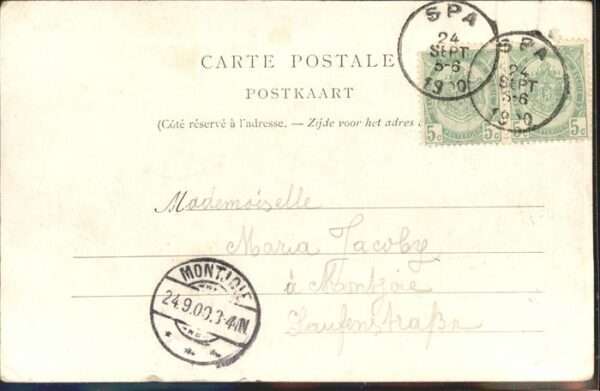 CARTE POSTALE
POSTKAART
(Côté réservé à l'adresse. — Zijde voor het adres
SPA
24
SEPT
5-6
1900
SPA
24
SEPT
5-6
1900
5c 5c
5c
Mademoiselle
Maria Jacoby
à Montjoie
Laufenstraße
MONTJOIE
24.9.00.3-4N.